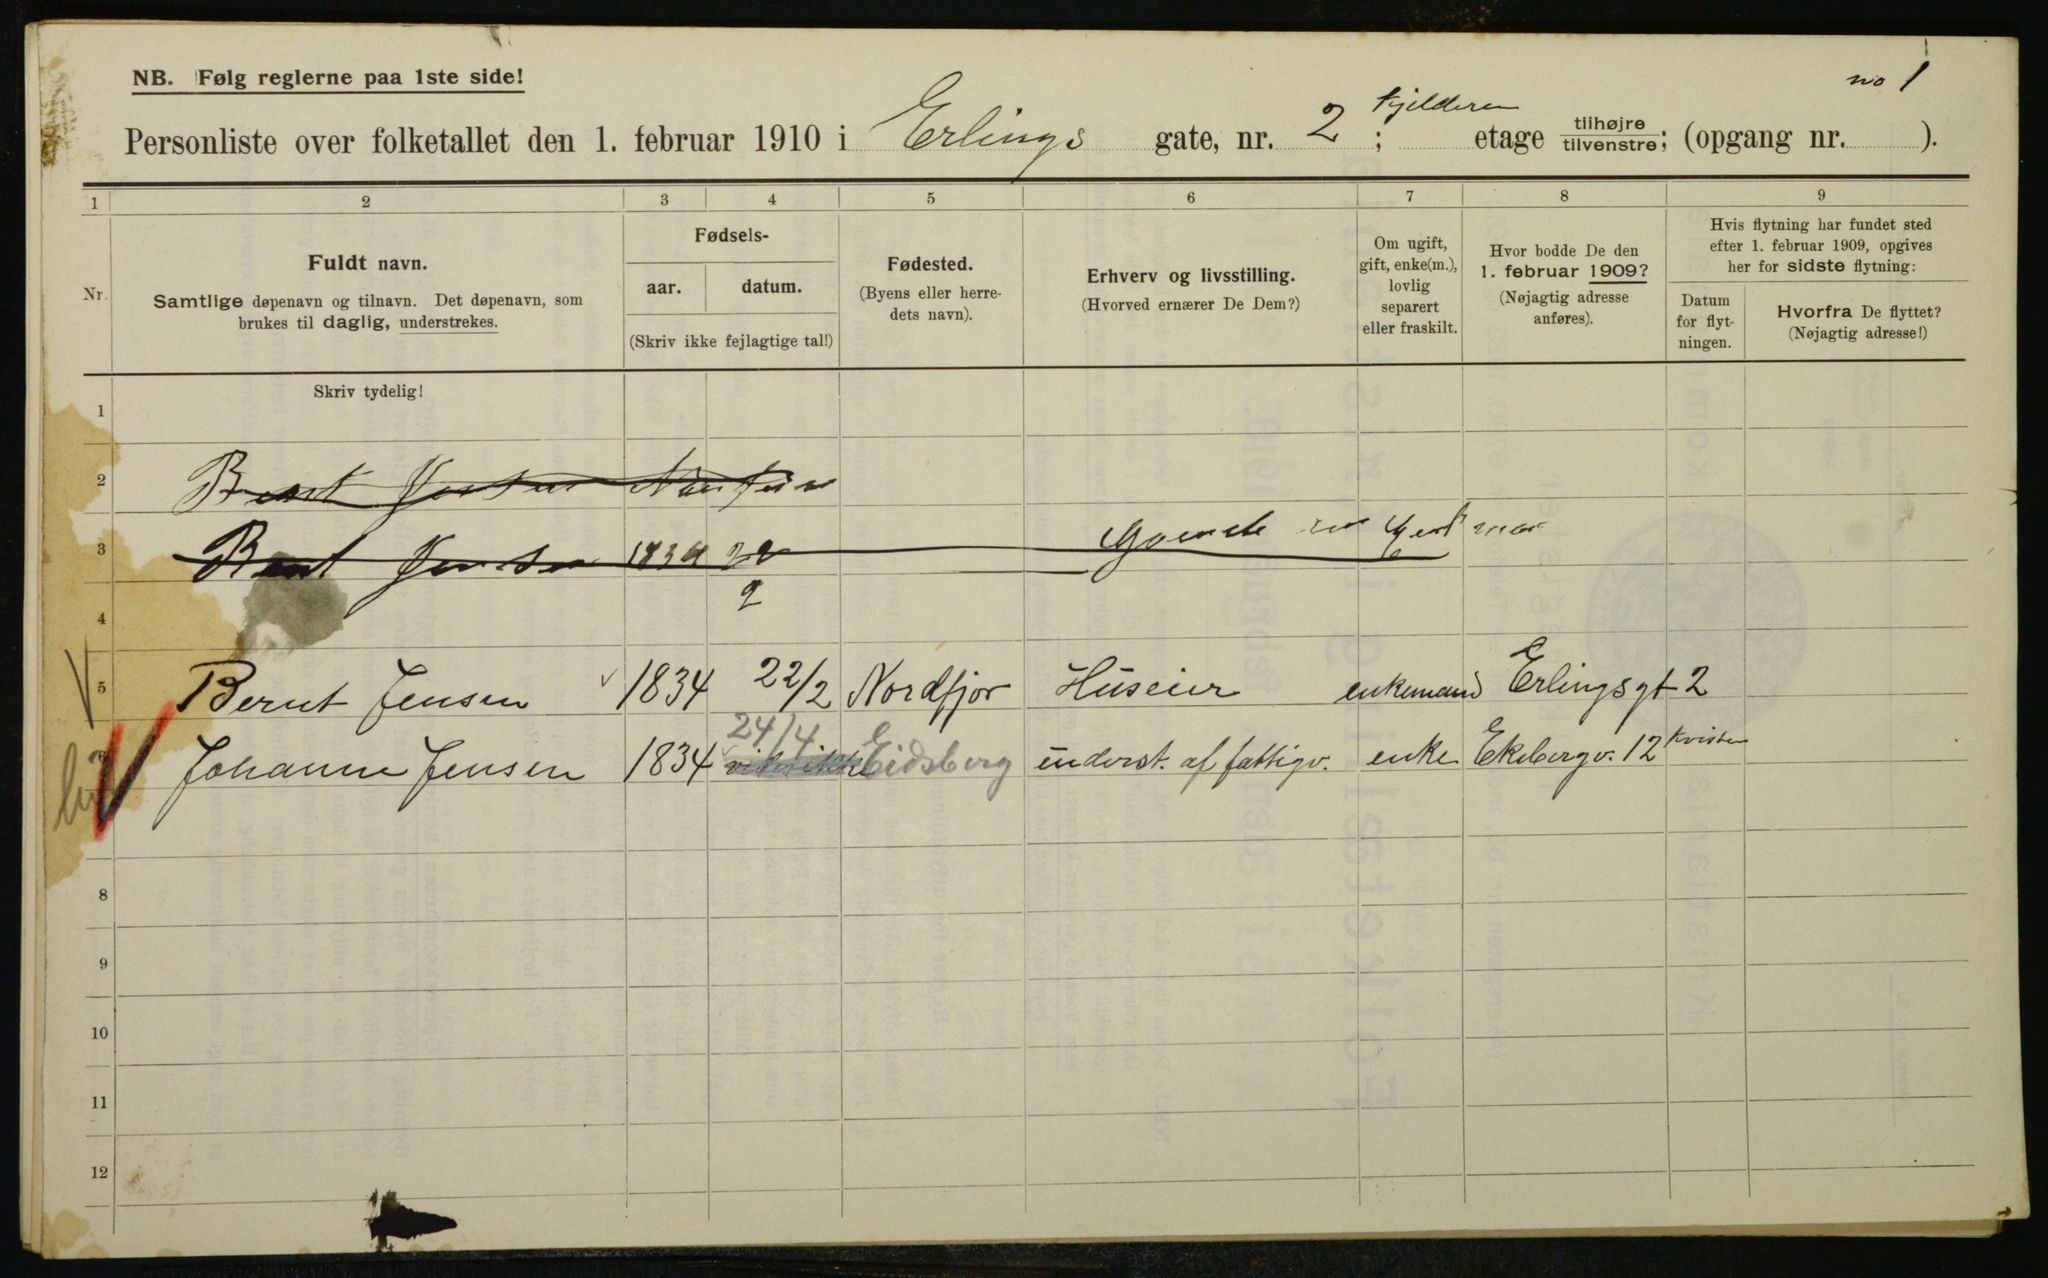 NB. Følg reglerne paa 1ste side!
no 1
Personliste over folketallet den 1. februar 1910 i Erlings gate, nr. 2 ; Kjelderen etage tilhøjre tilvenstre; (opgang nr. ).
1 2 3 4 5 6 7 8 9
Nr.
Fuldt navn.
Samtlige døpenavn og tilnavn. Det døpenavn, som
brukes til daglig, understrekes.
Fødsels-
aar. datum.
(Skriv ikke fejlagtige tal!)
Fødested.
(Byens eller herre-
dets navn).
Erhverv og livsstilling.
(Hvorved ernærer De Dem?)
Om ugift,
gift, enke(m.),
lovlig
separert
eller fraskilt.
Hvor bodde De den
1. februar 1909?
(Nøjagtig adresse
anføres).
Hvis flytning har fundet sted
efter 1. februar 1909, opgives
her for sidste flytning:
Datum
for flyt-
ningen.
Hvorfra De flyttet?
(Nøjagtig adresse!)
Skriv tydelig!
1
2 Bernt Jensen
3 Bernt Jensen 1834 22
2
4
5 Bernt Jensen 1834 22/2 Nordfjor Huseier enkemand Erlingsgt 2
24/4
6 Johanne Jensen 1834 vides ikke Eidsberg underst. af fattigv. enke Ekebergv. 12 Kvisten
8
9
10
11
12